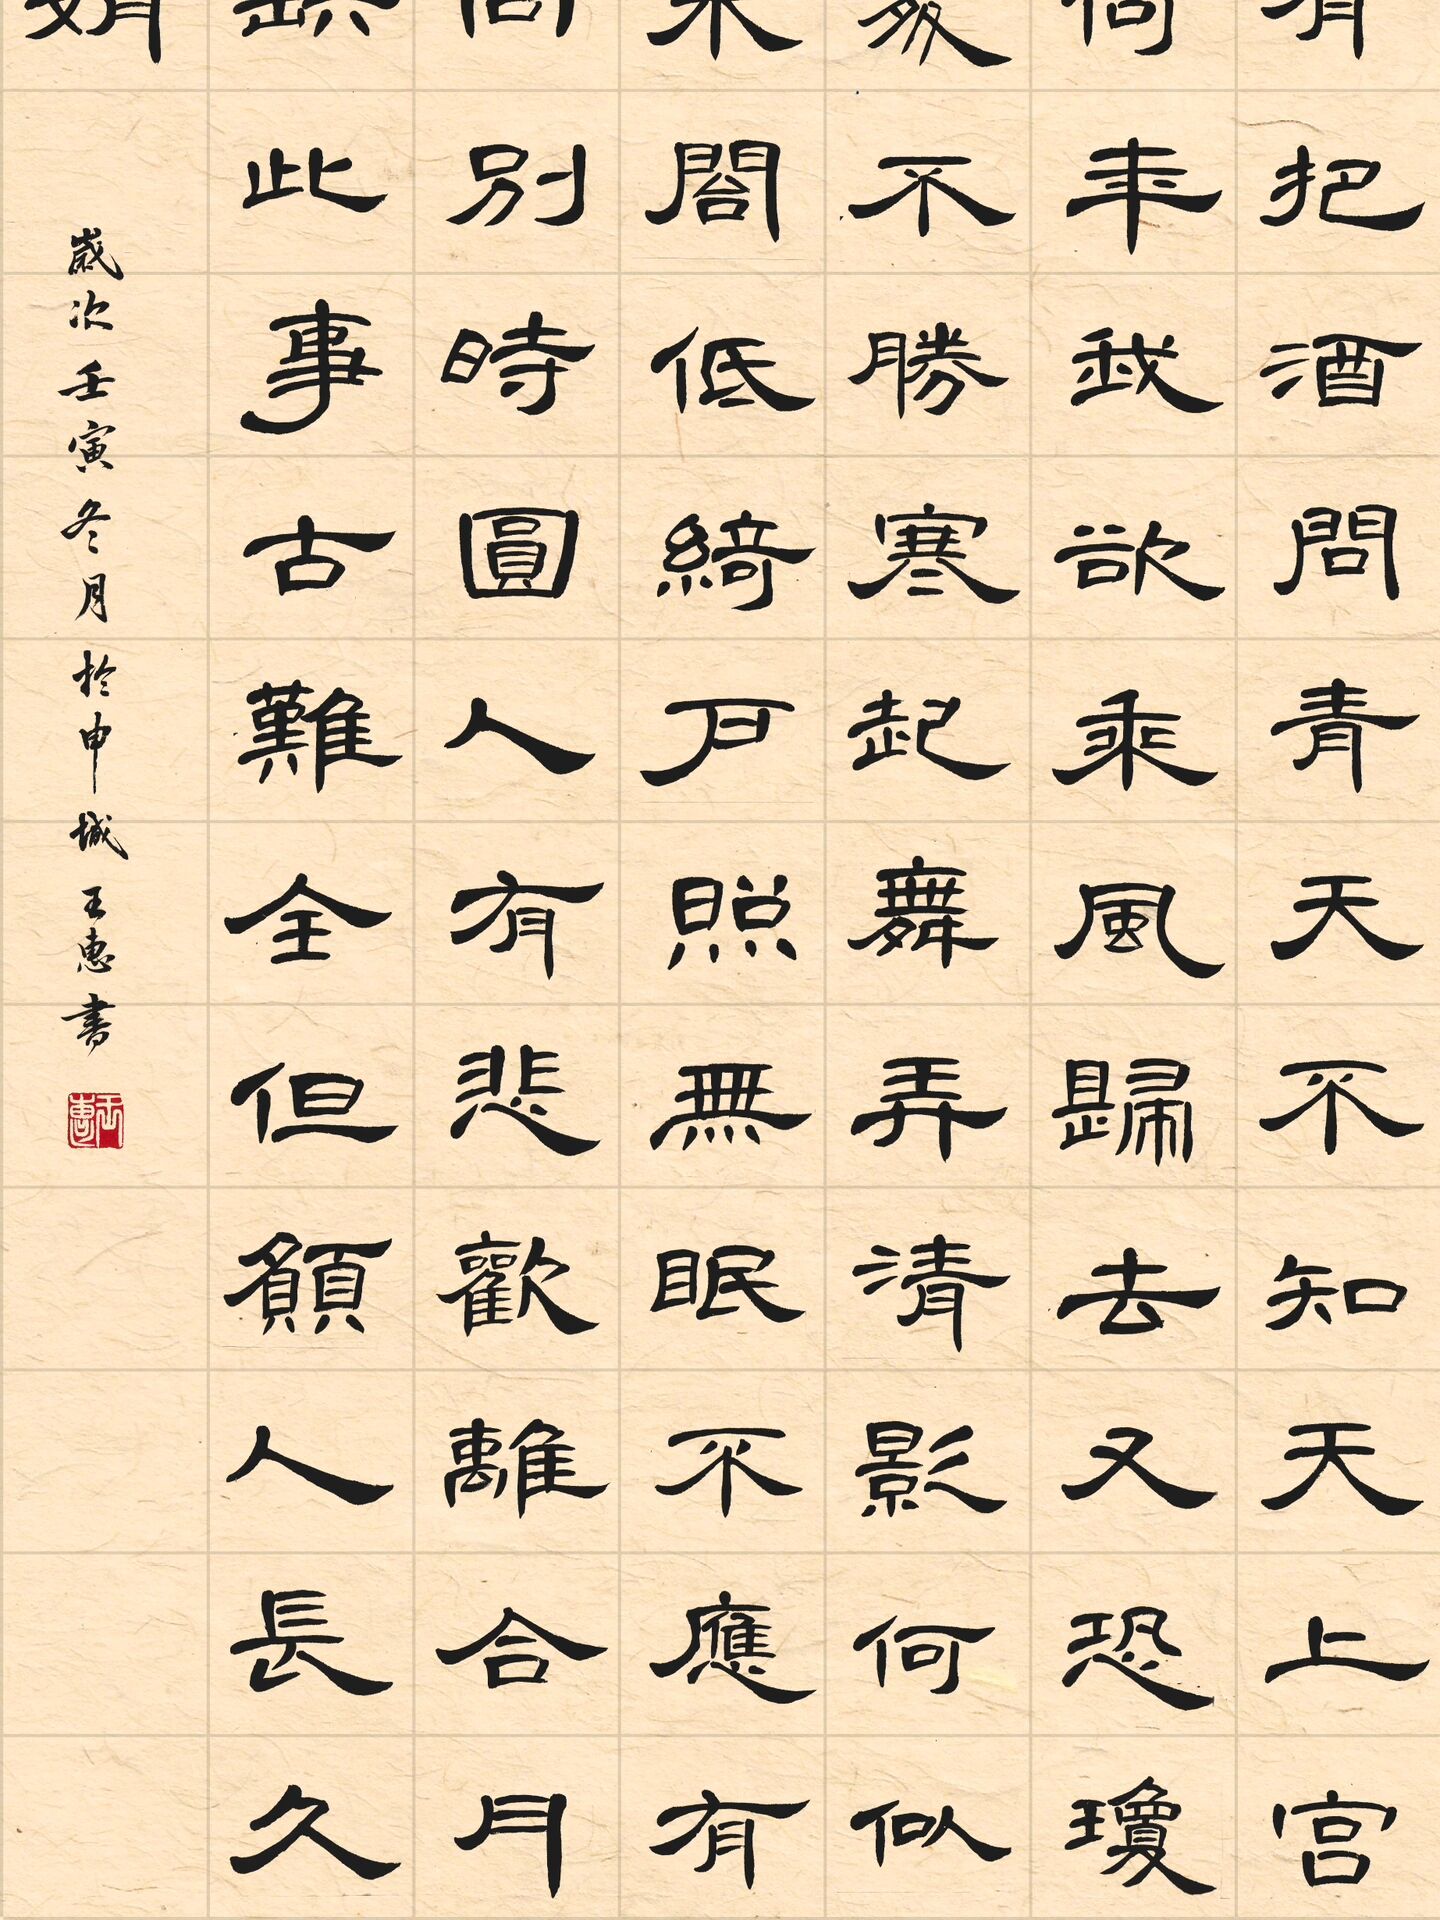 有把酒問青天不知天上宮
何年我欲乘風歸去又恐瓊
不勝寒起舞弄清影何似
閣低綺戶照無眠不應有
別時圓人有悲歡離合月
缺此事古難全但願人長久
娟
歲次壬寅冬月於申城王惠書